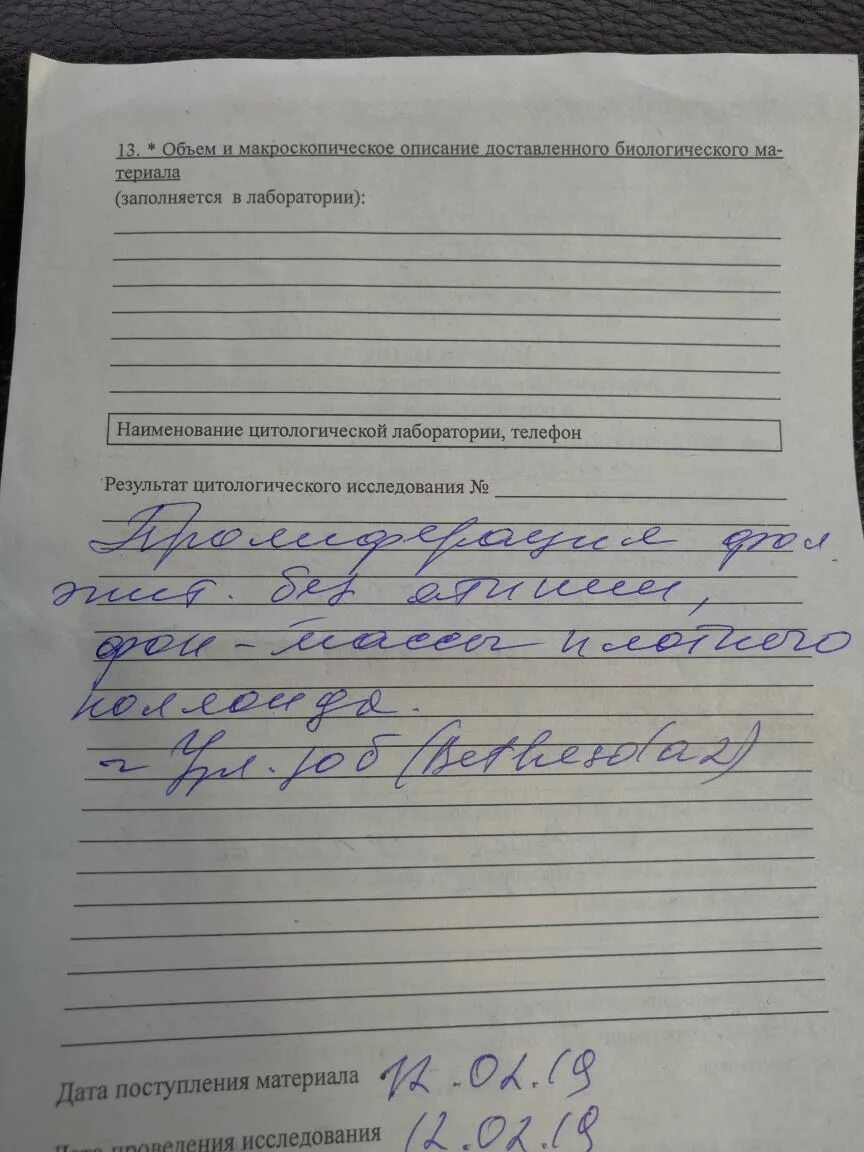 13. * Объем и макроскопическое описание доставленного биологического ма-
териала
(заполняется в лаборатории):
Наименование цитологической лаборатории, телефон
Результат цитологического исследования №
Пролиферация фол.
эпит. без атипии,
фон - массы плотного
коллоида.
Узл. зоб (Bethesda 2)
Дата поступления материала 12.02.19
Дата проведения исследования 12.02.19